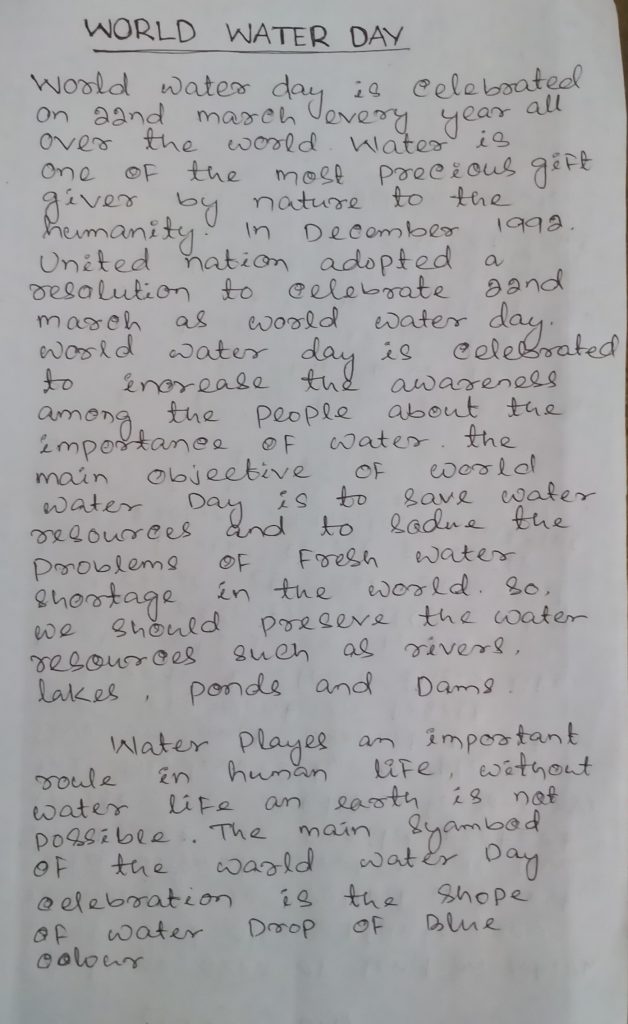 WORLD WATER DAY
World water day is celebrated
on 22nd march every year all
over the world. Water is
one of the most precious gift
giver by nature to the
humanity. In December 1992.
United nation adopted a
resolution to celebrate 22nd
march as world water day.
world water day is celebrated
to increase the awareness
among the people about the
importance of water. the
main objective of world
water Day is to save water
resources and to sadue the
problems of Fresh water
shortage in the world. So,
we should preseve the water
resources such as rivers,
lakes, ponds and Dams.
Water Playes an important
roule in human life, without
water life an earth is not
possible. The main Syambod
of the warld water Day
celebration is the Shope
of water Drop of Blue
colour